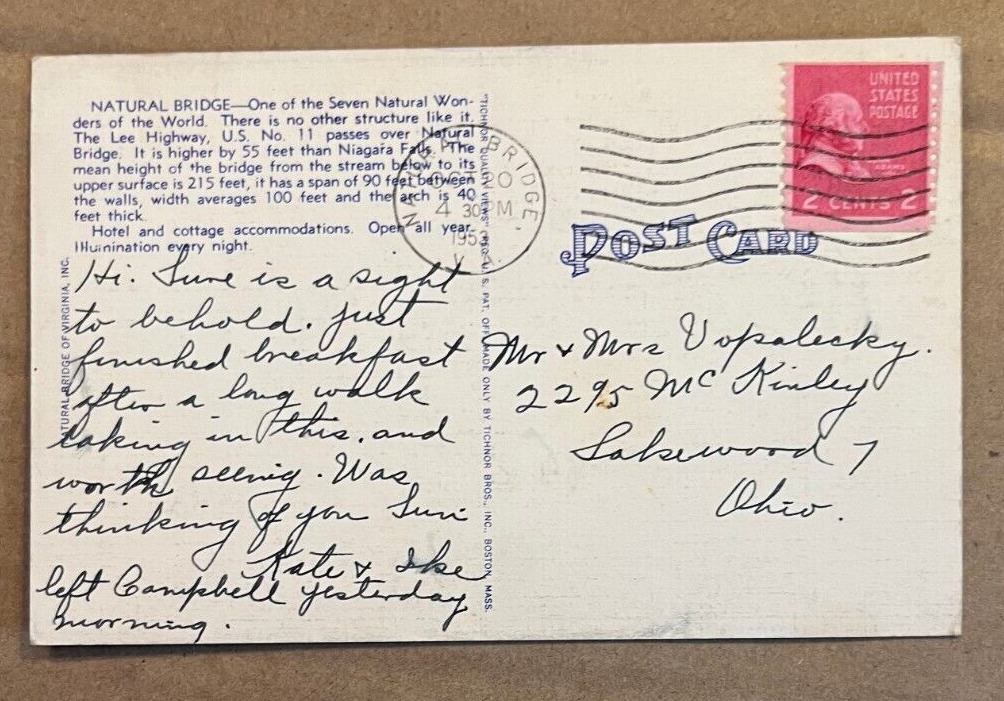 NATURAL BRIDGE—One of the Seven Natural Won-
ders of the World. There is no other structure like it.
The Lee Highway, U.S. No. 11 passes over Natural
Bridge. It is higher by 55 feet than Niagara Falls. The
mean height of the bridge from the stream below to its
upper surface is 215 feet, it has a span of 90 feet between
the walls, width averages 100 feet and the arch is 40
feet thick.
Hotel and cottage accommodations. Open all year.
Illumination every night.
NATURAL BRIDGE OF VIRGINIA, INC.
Hi. Sure is a sight
to behold. Just
finished breakfast
after a long walk
taking in this. and
worth seeing. Was
thinking of you Sun
Kate & Ike
left Campbell yesterday
morning.
"TICHNOR QUALITY VIEWS" REG. U. S. PAT. OFF. MADE ONLY BY TICHNOR BROS., INC., BOSTON, MASS.
NATURAL BRIDGE,
OCT 20
4 30 PM
195
UNITED
STATES
POSTAGE
2 CENTS 2
POST CARD
Mr & Mrs Vopalecky.
2295 Mc Kinley
Lakewood 7
Ohio.